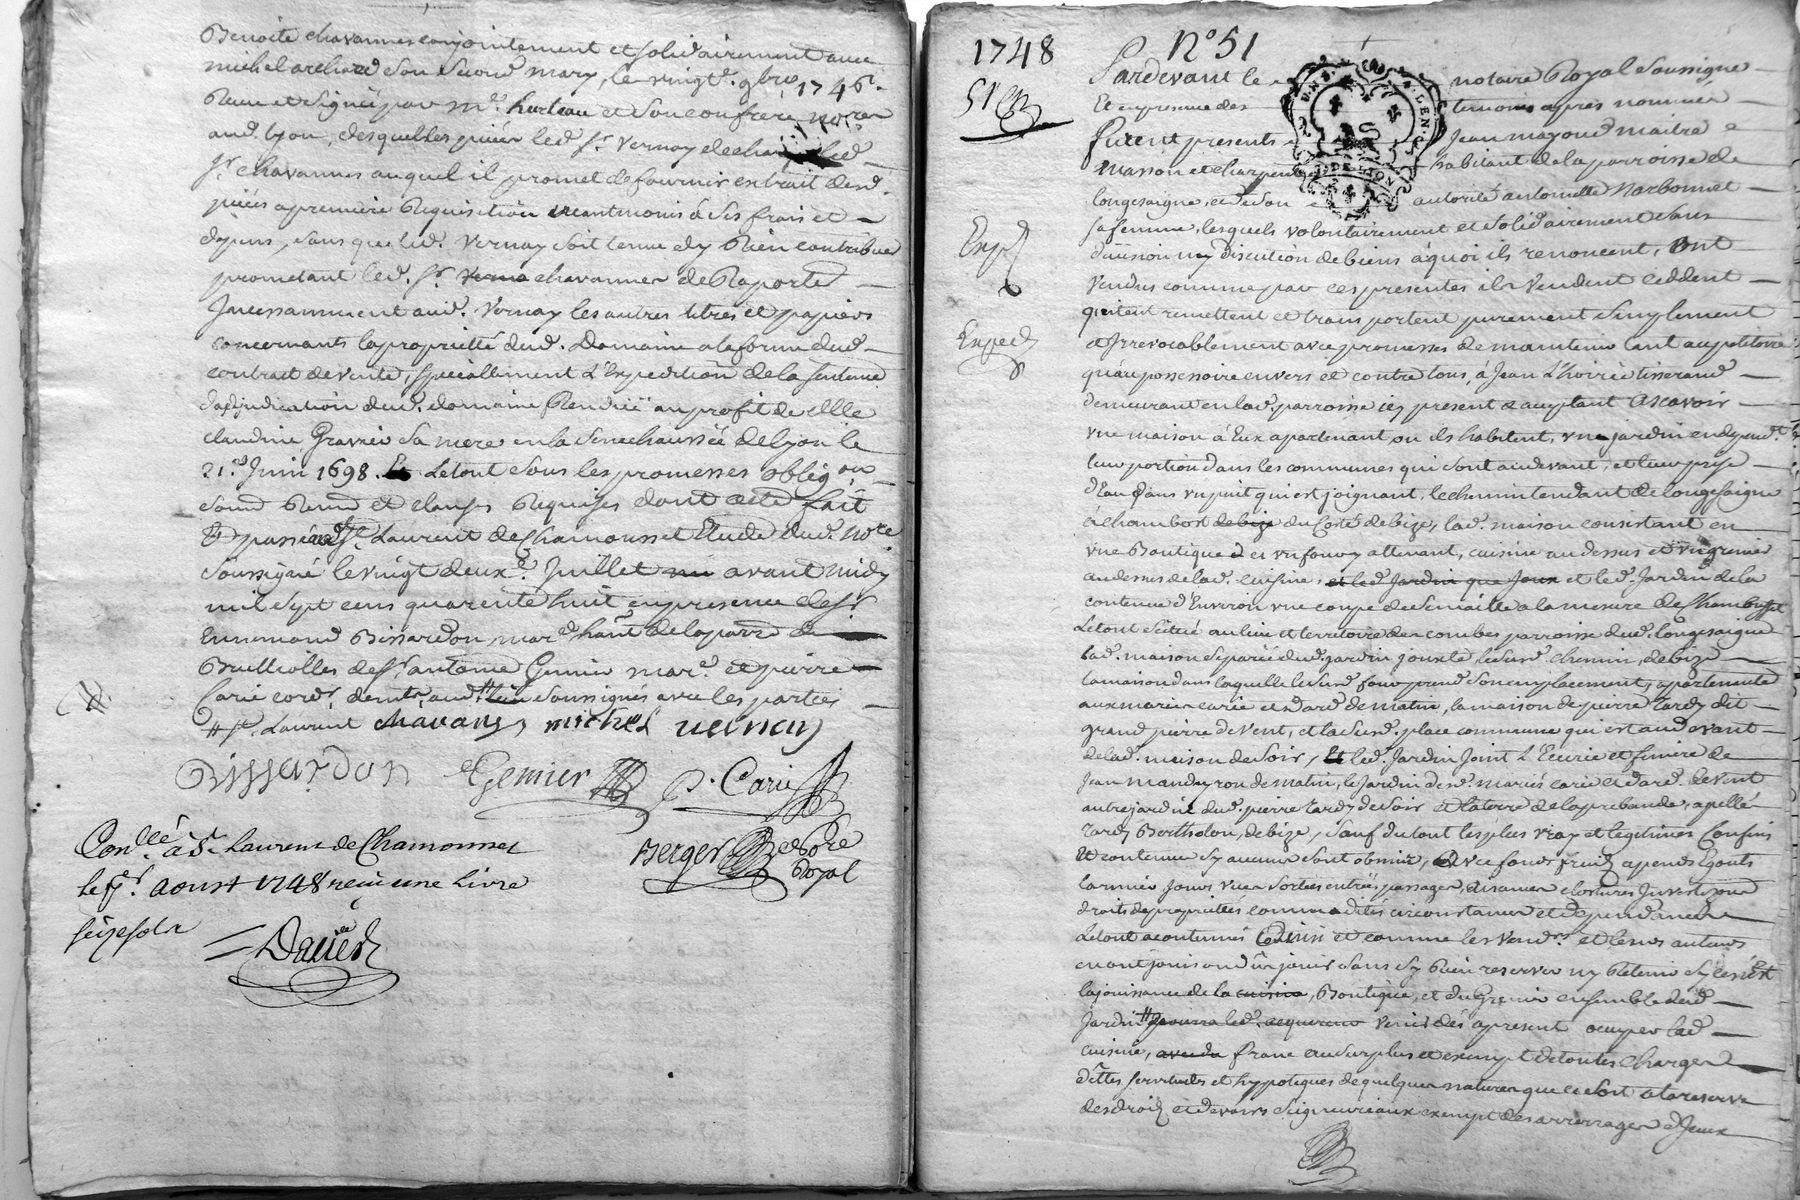 Benoite chavannes conjointement et solidairement avec
michel archard son second mary, le vingt. 9bre 1746.
Reçu et signé par Me. hurteau et son confrère norea
aud. lyon, desquelles pièces led. Sr. Vernay decharge led
Sr. chavannes auquel il promet de fournir extrait desd.
pièces a premiere Requisition neantmoins à ses frais et
depens, sans que led. Vernay soit tenu dy Rien contribuer
prometant led. Sr. chavannes de Raporter
Incessamment aud. Vernay les autres titres et papiers
concernants la proprietté dud. Domaine a la forme dud
contrat de vente, speciallement L'Expedition de la sentence
dadjudication dud. domaine Rendüe au profit de elle
claudine Gravier sa mere en la Senechaussée de lyon le
21e. Juin 1698. Le tout sous les promesses oblig.on
soum Renon et clauses Requises dont acte fait
Et passé aud. St. Laurent de Chamousset Etude dud. No.re
soussigné le vingt deuxe. Juillet avant midy
mil sept cens quarente huit en presence de Sr
Ennemond Bissardon mar.d de la parre de
Brulliolles de Sr. antoine Gemier mar.d et pierre
Carie cord.r demt. aud. soussignés avec les parties
# St. Laurent chavanes michel vernay
Bissardon Gemier P. Carie
Con.llé à St. Laurent de Chamousset
le aoust 1748 reçu une livre
seize sols
Berger No.re Royal
Davied
1748 No 51
51
Pardevant le notaire Royal soussigné
Et en presence des temoins apres nommes
furent presents Jean mayoud maitre
masson et charpentier habitant de la parroisse de
longesaigne, et de son autorité antoinette Narbonnet
sa femme, lesquels volontairement et solidairement sans
division ny discution de biens à quoi ils renoncent, ont
vendus comme par ces presentes ils vendent ceddent
quitent remettent et transportent purement simplement
et Irrevocablement avec promesses de maintenir tant au petitoire
qu'au possessoire envers et contre tous, a Jean L'horrie tisserand
demeurant en lad. parroisse icy present & acceptant Ascavoir
une maison à Eux apartenant ou ils habitent, un jardin en depend.t
leur portion dans les communes qui sont audevant, et leur prise
d'Eau dans un puit qui est joignant le chemin tendant de longesaigne
à chambost de bize du Coté de bize, lad. maison consistant en
une Boutique et un four attenant, cuisine au dessus et un grenier
au dessus de lad. cuisine, et led. Jardin que Joux et led. Jardin de la
contenue d'Environ une coupe de Semaille a la mesure de Chambost
Le tout scitué au lieu et territoire des combes parroisse dud. longesaigne
lad. maison separée dud. jardin joute le susd. chemin, de bize
la maison dans laquelle le susd. four prend son emplacement, apartenante
aux mariés carie et dard de matin, la maison de pierre tardy dit
grand pierre de Vent, et la susd. place commune qui est aud evant
de lad. maison de soir, Et led. Jardin Joint L'Ecurie et fumiere de
Jean mandeyron de matin, le jardin desd. mariés carie et dard de Vent
autre jardin dud. pierre tardy de soir et la terre de la prebande, apellé
tardy Bertholon, de bize, sauf du tout les plus vray et legitimes Confins
Et contenue sy aucuns sont obmis, Avec fonds fruits apends Egouts
larmier Jours vuer sorties entrées passages, aisances clostures
droits de proprietés commodités circonstances et dependances
Le tout a contenuës et comme les vend.rs et leurs auteurs
en ont jouis ou dû jouir sans sy Rien reserver ny Retenir
la jouissance de la cuisine, Boutique, et du Grenier ensemble dud
Jardin # pourra led. acquereur venir dès apresent ocuper lad
cuisine, franc au surplus et exempt de toutes Charges
dettes servitudes et hypoteques de quelques natures que ce soit a la reserve
des droits et devoirs Seigneuriaux exempt des arrerages d'Jeux
Exp.d
Exped